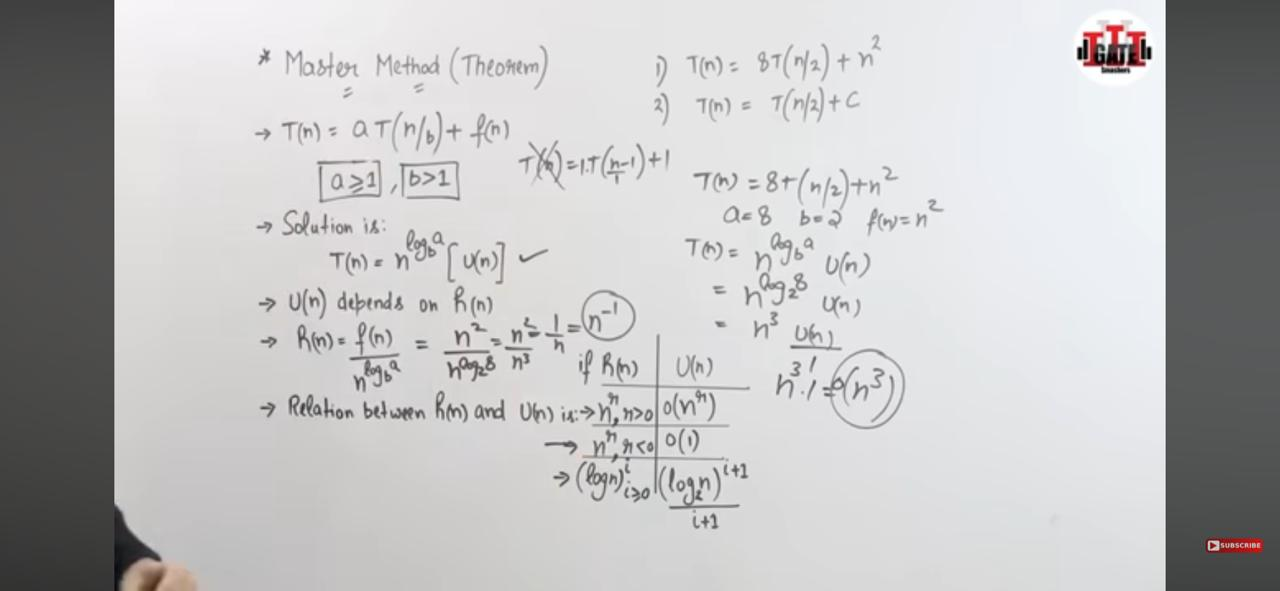 * Master Method (Theorem)
→ T(n) = a T(n/b) + f(n)
a ≥ 1 , b > 1
T(n) = 1.T(n-1/1) + 1
→ Solution is:
T(n) = n^log_b a [U(n)] ✓
→ U(n) depends on h(n)
→ h(n) = f(n)/n^log_b a = n^2/n^log_2 8 = n^2/n^3 = 1/n = n^-1
→ Relation between h(n) and U(n) is:→
if h(n) | U(n)
n^r, r>0 | O(n^r)
→ n^r, r<0 | O(1)
→ (log n)^i i≥0 | (log_2 n)^i+1 / i+1
1) T(n) = 8T(n/2) + n^2
2) T(n) = T(n/2) + C
T(n) = 8T(n/2) + n^2
a=8 b=2 f(n)=n^2
T(n) = n^log_b a U(n)
= n^log_2 8 U(n)
= n^3 U(n)
n^3.1 = O(n^3)
GATE
Smashers
SUBSCRIBE